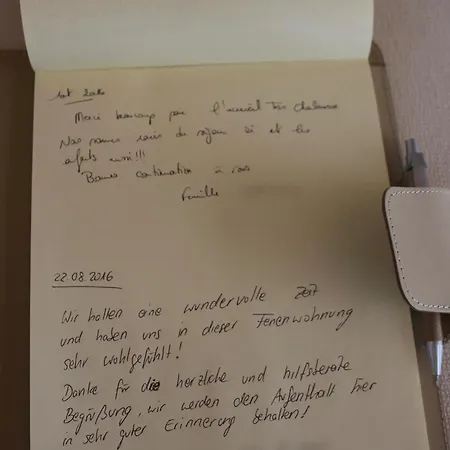 Août 2016
Merci beaucoup pour l'accueil Très chaleureux
Nous sommes ravis du séjour ici et les
enfants aussi!!!
Bonne continuation à vous
Famille
22.08.2016
Wir hatten eine wundervolle Zeit
und haben uns in dieser Ferienwohnung
sehr wohlgefühlt!
Danke für die herzliche und hilfsbereite
Begrüßung, wir werden den Aufenthalt hier
in sehr guter Erinnerung behalten!